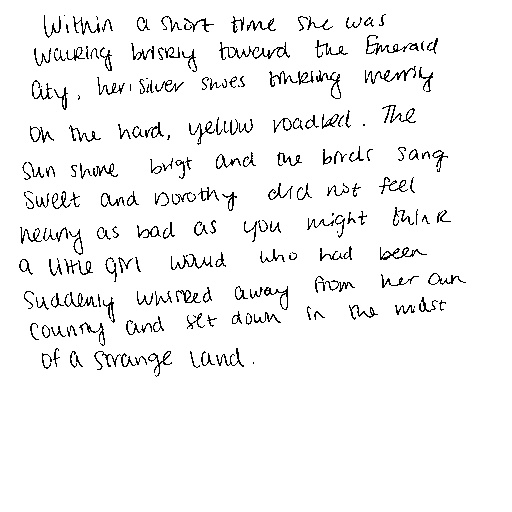 Within a short time she was
walking briskly toward the Emerald
City, her silver shoes tinkling merrily
on the hard, yellow roadbed. The
sun shone brigt and the birds sang
sweet and Dorothy did not feel
nearly as bad as you might think
a little girl would who had been
suddenly whisked away from her own
country and set down in the midst
of a strange land.